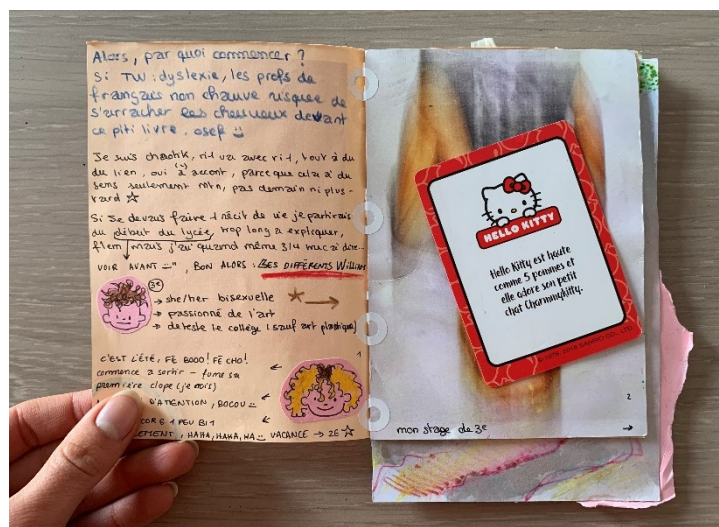 Alors, par quoi commencer ?
Si TW : dyslexie, les profs de
français non chauve risquee de
s'arracher les cheuveux devant
ce piti livre. osef
Je suis chaotik, ri1 va avec ri1, tout à du
du lien, oui à accent, parce que cela a du
sens seulement mtn, pas demain ni plus-
tard
Si je devais faire 1 récit de vie je partirais
du début du lycée, trop long a expliquer,
flem mais j'ai quand même 3/4 truc a dire...
VOIR AVANT , BON ALORS : LES DIFFÉRENTS William
3e
→ she/her bisexuelle
→ passionné de l'art
→ deteste le collège (sauf art plastique)
C'EST L'ÉTÉ, FÉ BOOO! FÉ CHO!
commence a sortir - fume sa
première clope (je crois)
D'ATENTION, BOCOU
CORE 1 PEU BI1
LEMENT, HAHA, HAHA, HA VACANCE → 2E
1
HELLO KITTY
Hello Kitty est haute
comme 5 pommes et
elle adore son petit
chat Charmmykitty.
© 1976, 2018 SANRIO CO., LTD.
2
mon stage de 3e →